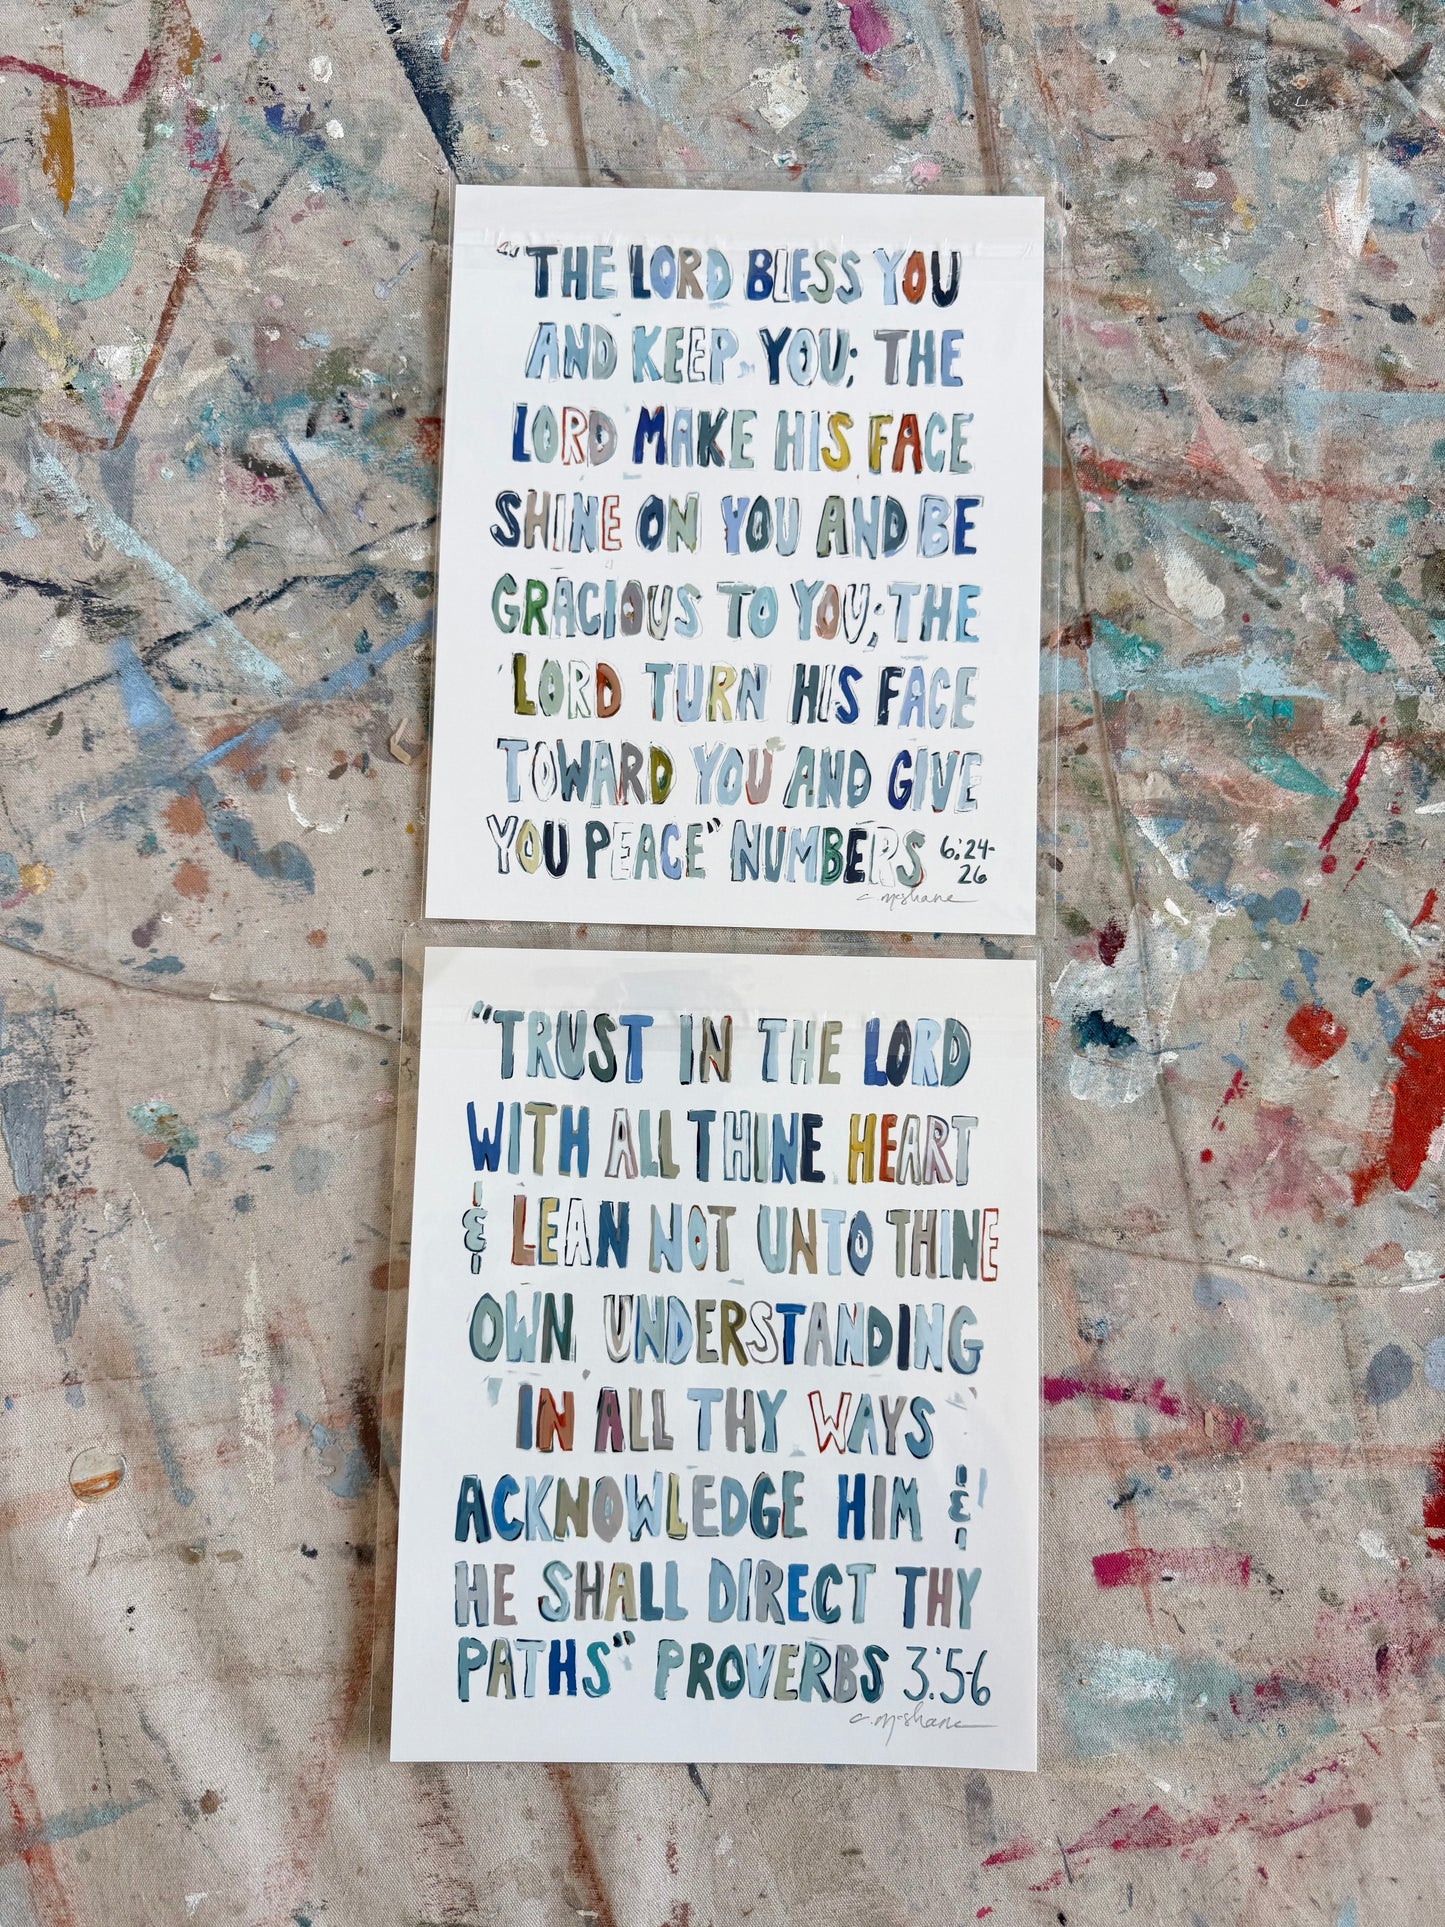 "THE LORD BLESS YOU
AND KEEP YOU; THE
LORD MAKE HIS FACE
SHINE ON YOU AND BE
GRACIOUS TO YOU; THE
LORD TURN HIS FACE
TOWARD YOU AND GIVE
YOU PEACE" NUMBERS 6:24-
26
c. McShane
"TRUST IN THE LORD
WITH ALL THINE HEART
& LEAN NOT UNTO THINE
OWN UNDERSTANDING
IN ALL THY WAYS
ACKNOWLEDGE HIM &
HE SHALL DIRECT THY
PATHS" PROVERBS 3:5-6
c. McShane